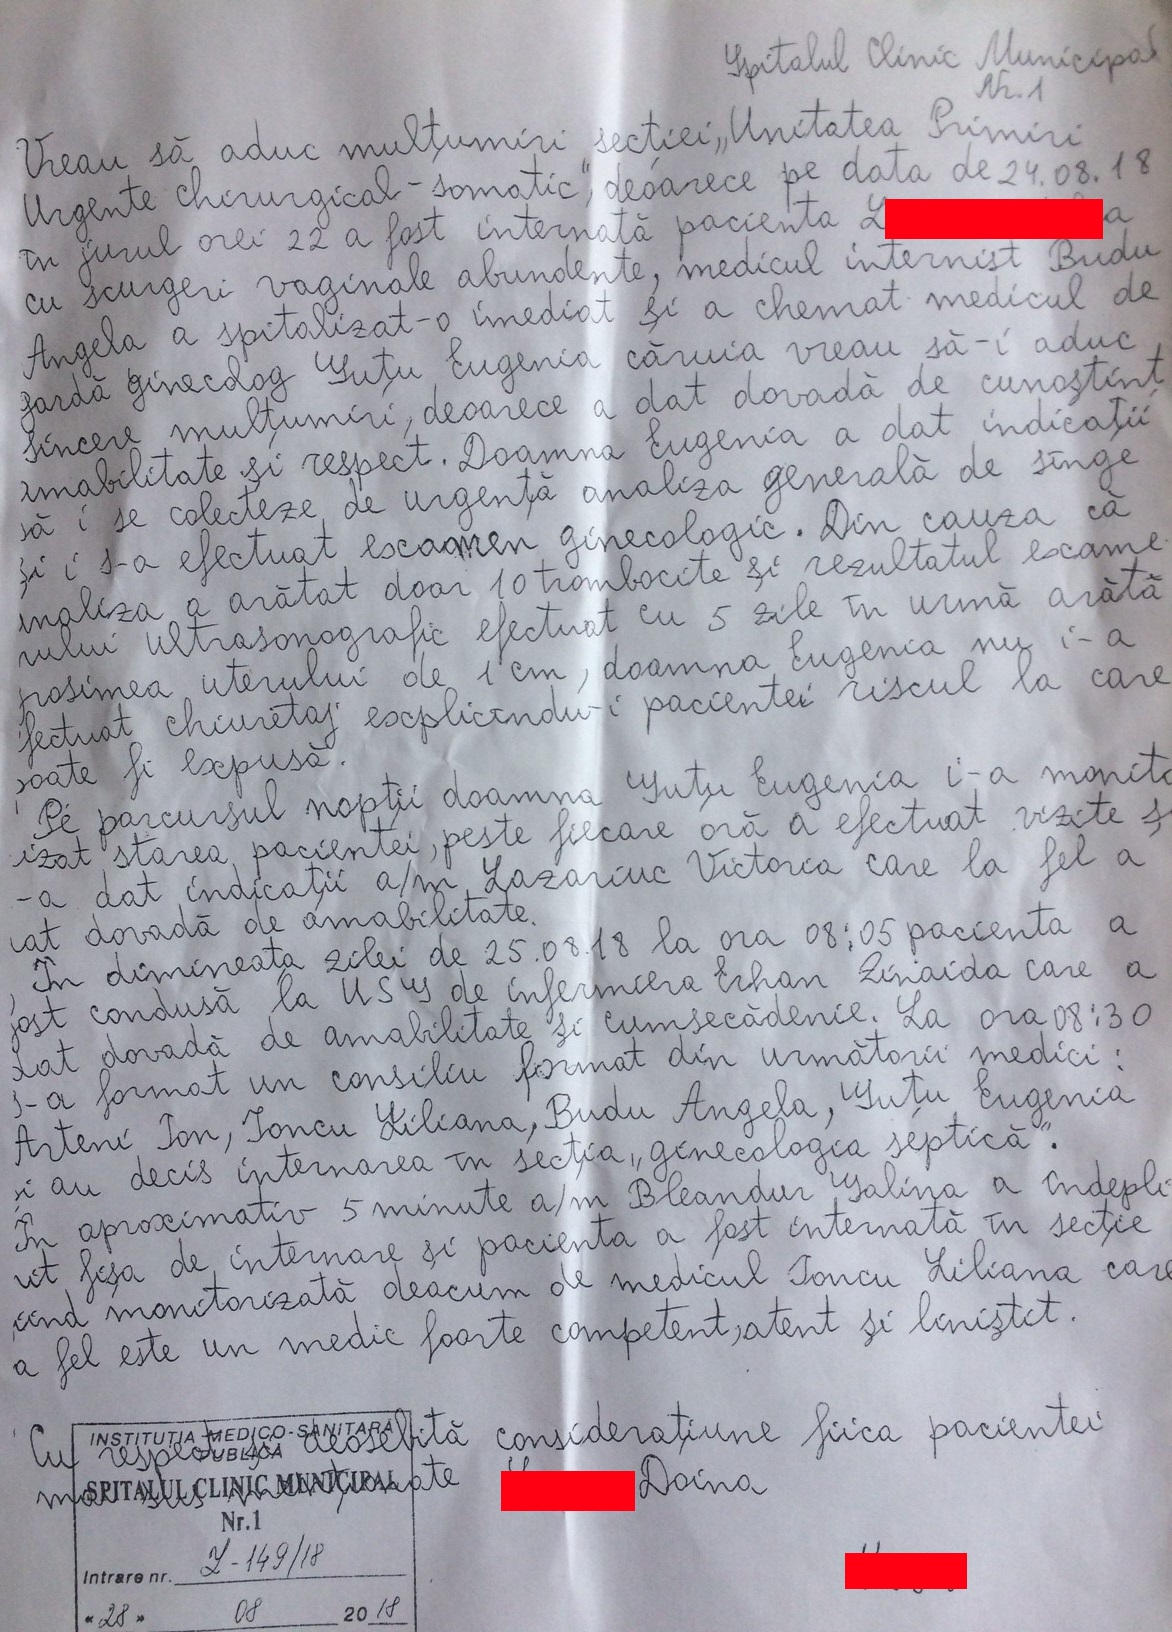 Spitalul Clinic Municipal
Nr. 1
Vreau să aduc mulțumiri secției „Unitatea Primiri
Urgente chirurgical-somatic", deoarece pe data de 24.08.18
în jurul orei 22 a fost internată pacienta L a
cu scurgeri vaginale abundente, medicul internist Budu
Angela a spitalizat-o imediat și a chemat medicul de
gardă ginecolog Guțu Eugenia căruia vreau să-i aduc
sincere mulțumiri, deoarece a dat dovadă de cunoștinț
amabilitate și respect. Doamna Eugenia a dat indicații
să i se colecteze de urgență analiza generală de sînge
și i s-a efectuat examen ginecologic. Din cauza că
analiza a arătat doar 10 trombocite și rezultatul exame
nului ultrasonografic efectuat cu 5 zile în urmă arătă
grosimea uterului de 1 cm, doamna Eugenia nu i-a
efectuat chiuretaj explicîndu-i pacientei riscul la care
poate fi expusă.
Pe parcursul nopții doamna Guțu Eugenia i-a monito
rizat starea pacientei, peste fiecare oră a efectuat vizite și
-a dat indicații a/m Lazariuc Victoria care la fel a
dat dovadă de amabilitate.
În dimineata zilei de 25.08.18 la ora 08:05 pacienta a
fost condusă la USG de infermiera Erhan Zinaida care a
dat dovadă de amabilitate și cumsecădenie. La ora 08:30
s-a format un consiliu format din următorii medici:
Arteni Ion, Ioncu Liliana, Budu Angela, Guțu Eugenia
și au decis internarea în secția „ginecologia septică".
În aproximativ 5 minute a/m Bleandur Galina a îndepli
nit fișa de internare și pacienta a fost internată în secție
fiind monitorizată deacum de medicul Ioncu Liliana care
la fel este un medic foarte competent, atent și liniștit.
Cu respect și deosebită considerațiune fiica pacientei
mai sus menționate Doina
INSTITUȚIA MEDICO-SANITARĂ
PUBLICĂ
SPITALUL CLINIC MUNICIPAL
Nr.1
Intrare nr. Z-149/18
"28" 08 2018